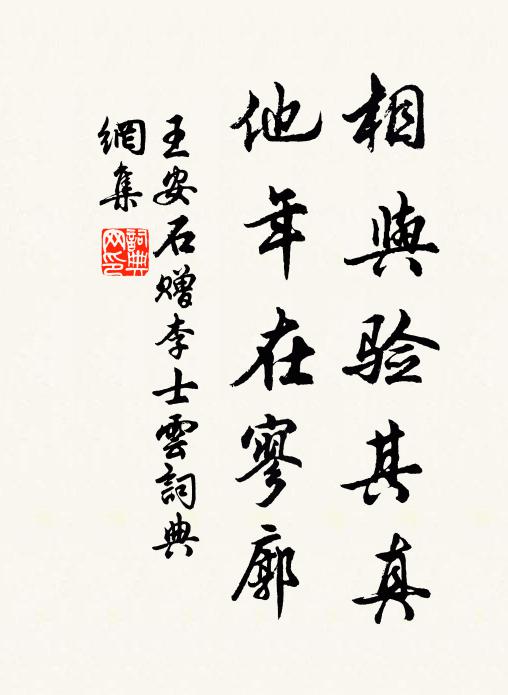 相與验其真
他年在寥廓
王安石赠李士雲詞典
網集
詞典
网印